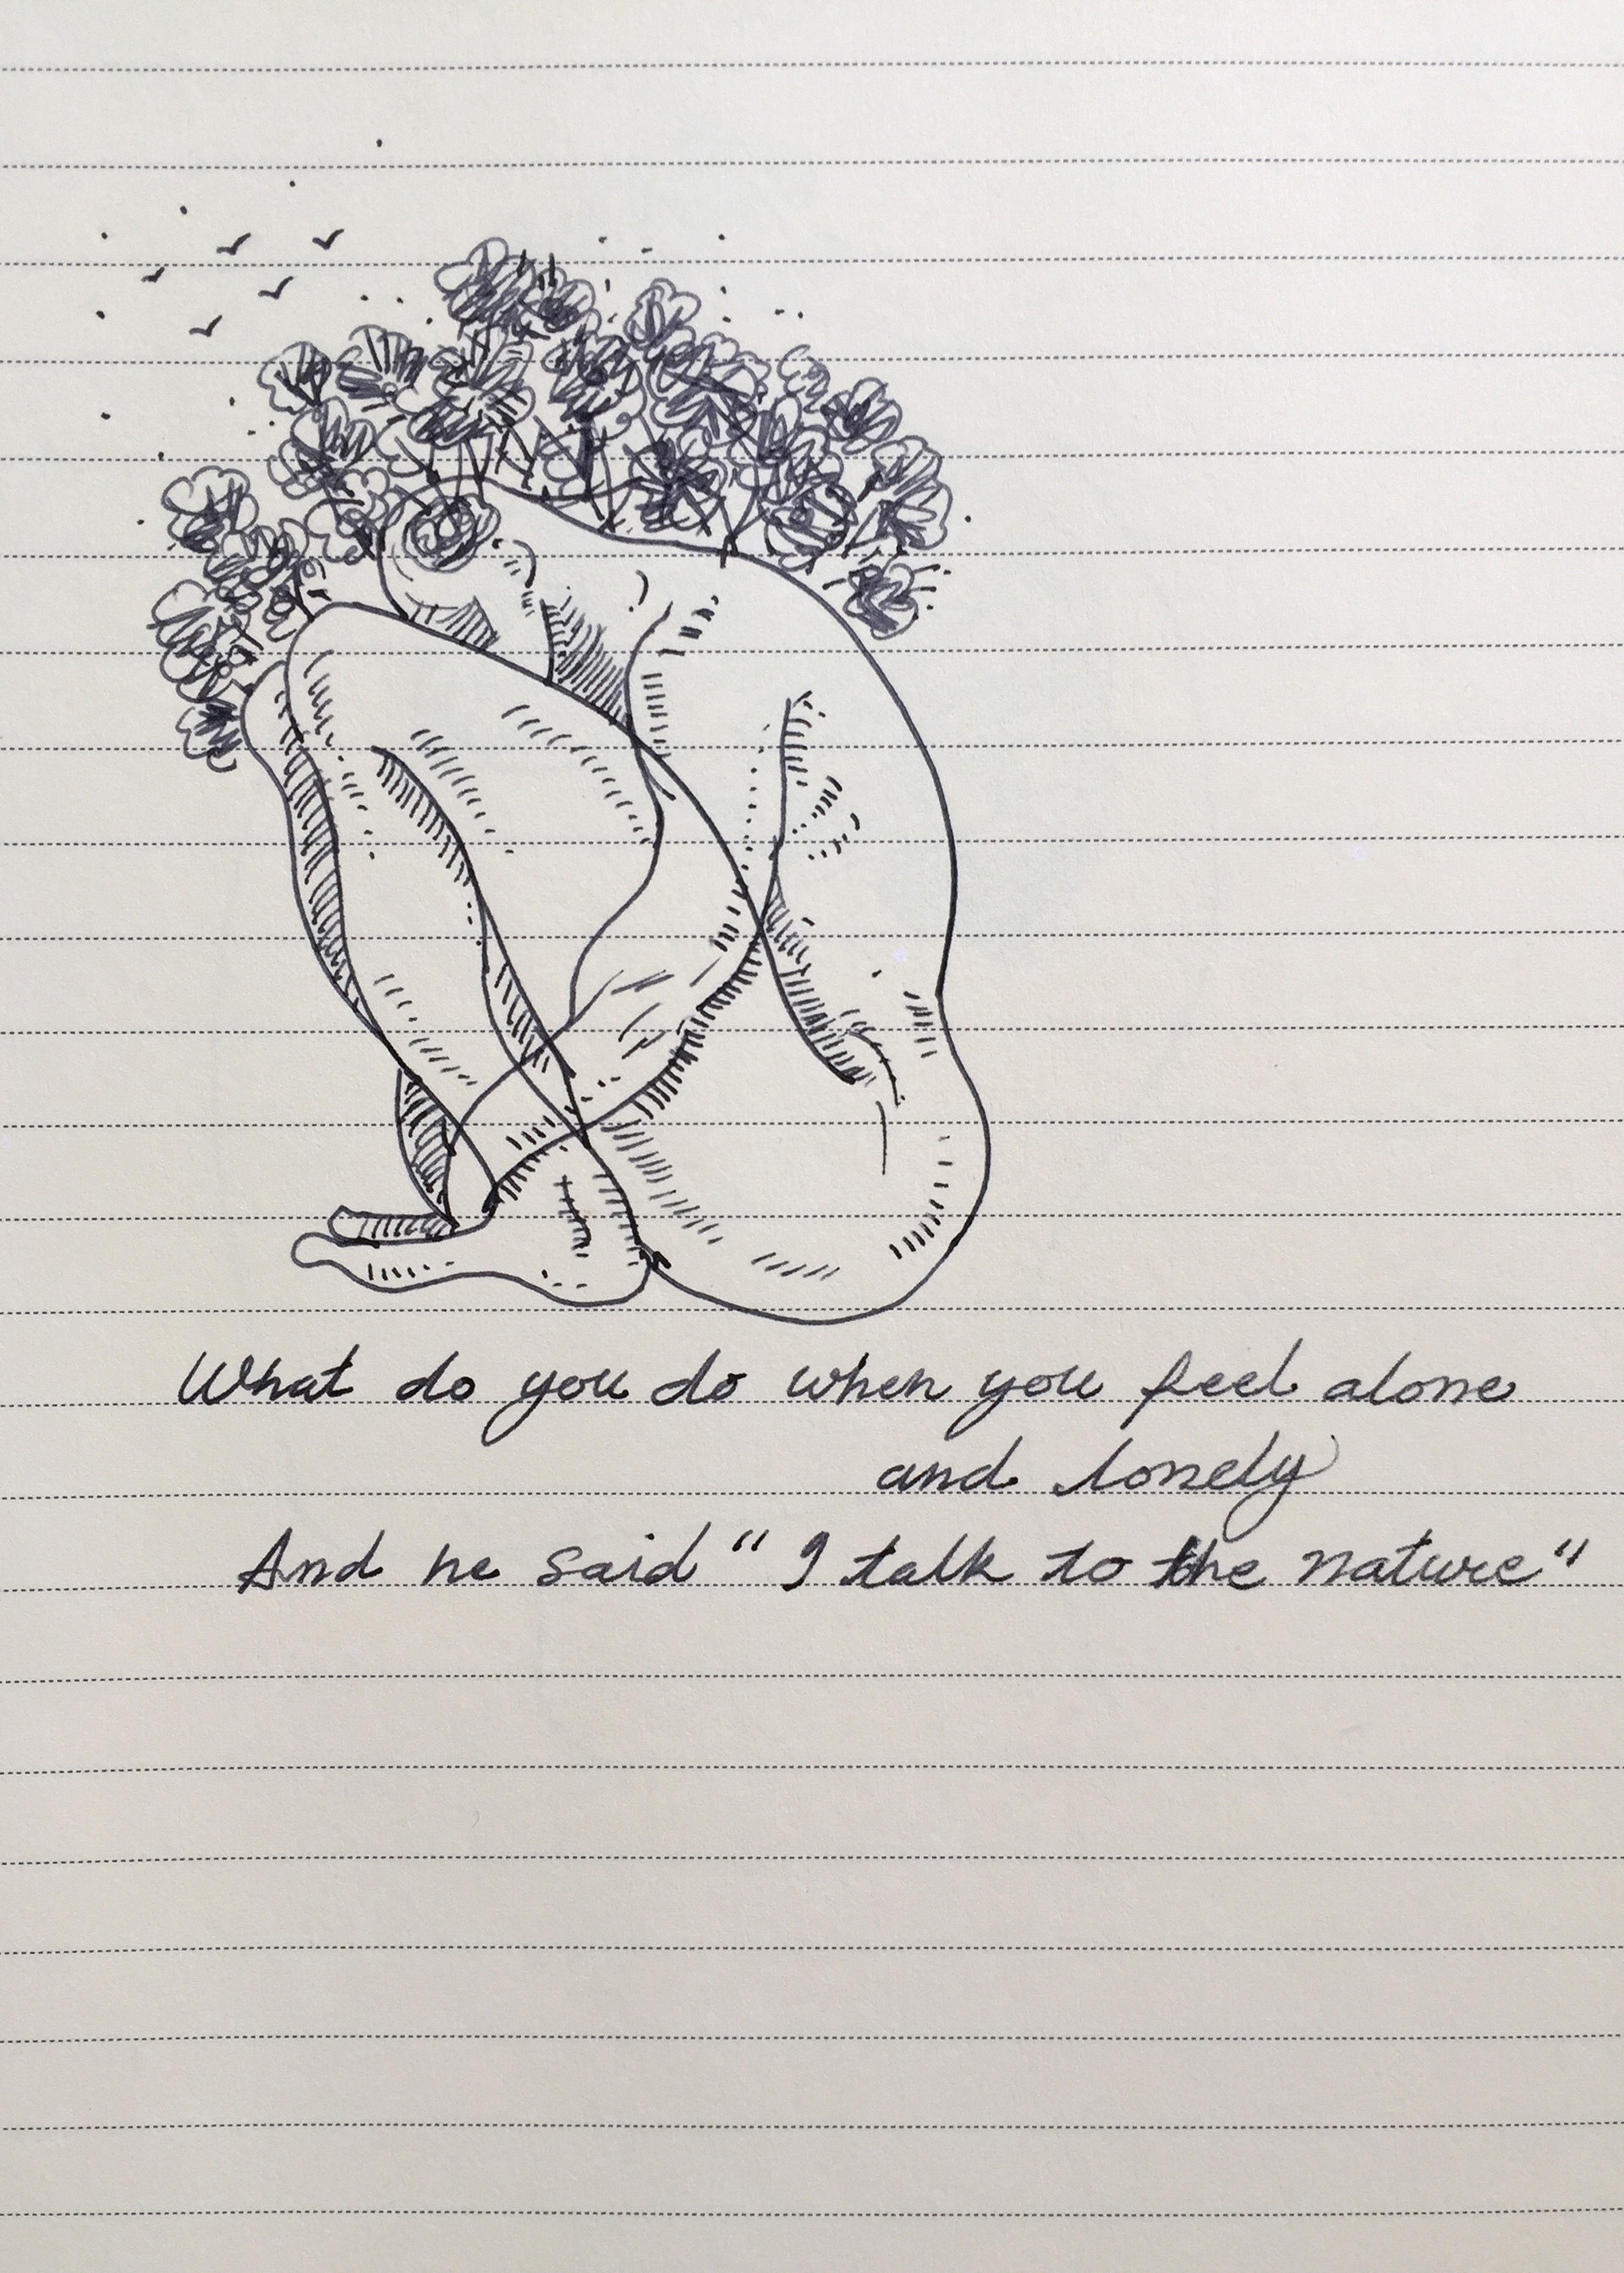 What do you do when you feel alone
and lonely
And he said " I talk to the nature"